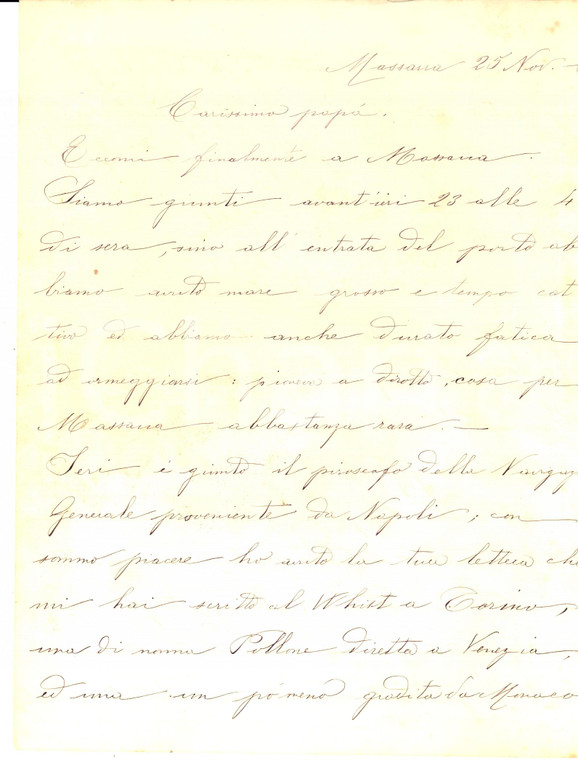 Massaua 25 Nov.
Carissimo papá.
Eccomi finalmente a Massaua.
Siamo giunti avant'ieri 23 alle 4
di sera, sino all'entrata del porto ab
biamo avuto mare grosso e tempo cat
tivo ed abbiamo anche durato fatica
ad ormeggiarsi: pioveva a dirotto, cosa per
Massaua abbastanza rara.—
Ieri è giunto il piroscafo della Navigaz
Generale proveniente da Napoli; con
sommo piacere ho avuto la tua lettera che
mi hai scritto al Whist a Torino,
una di nonna Pollone diretta a Venezia,
ed una un pó meno gradita da Monaco